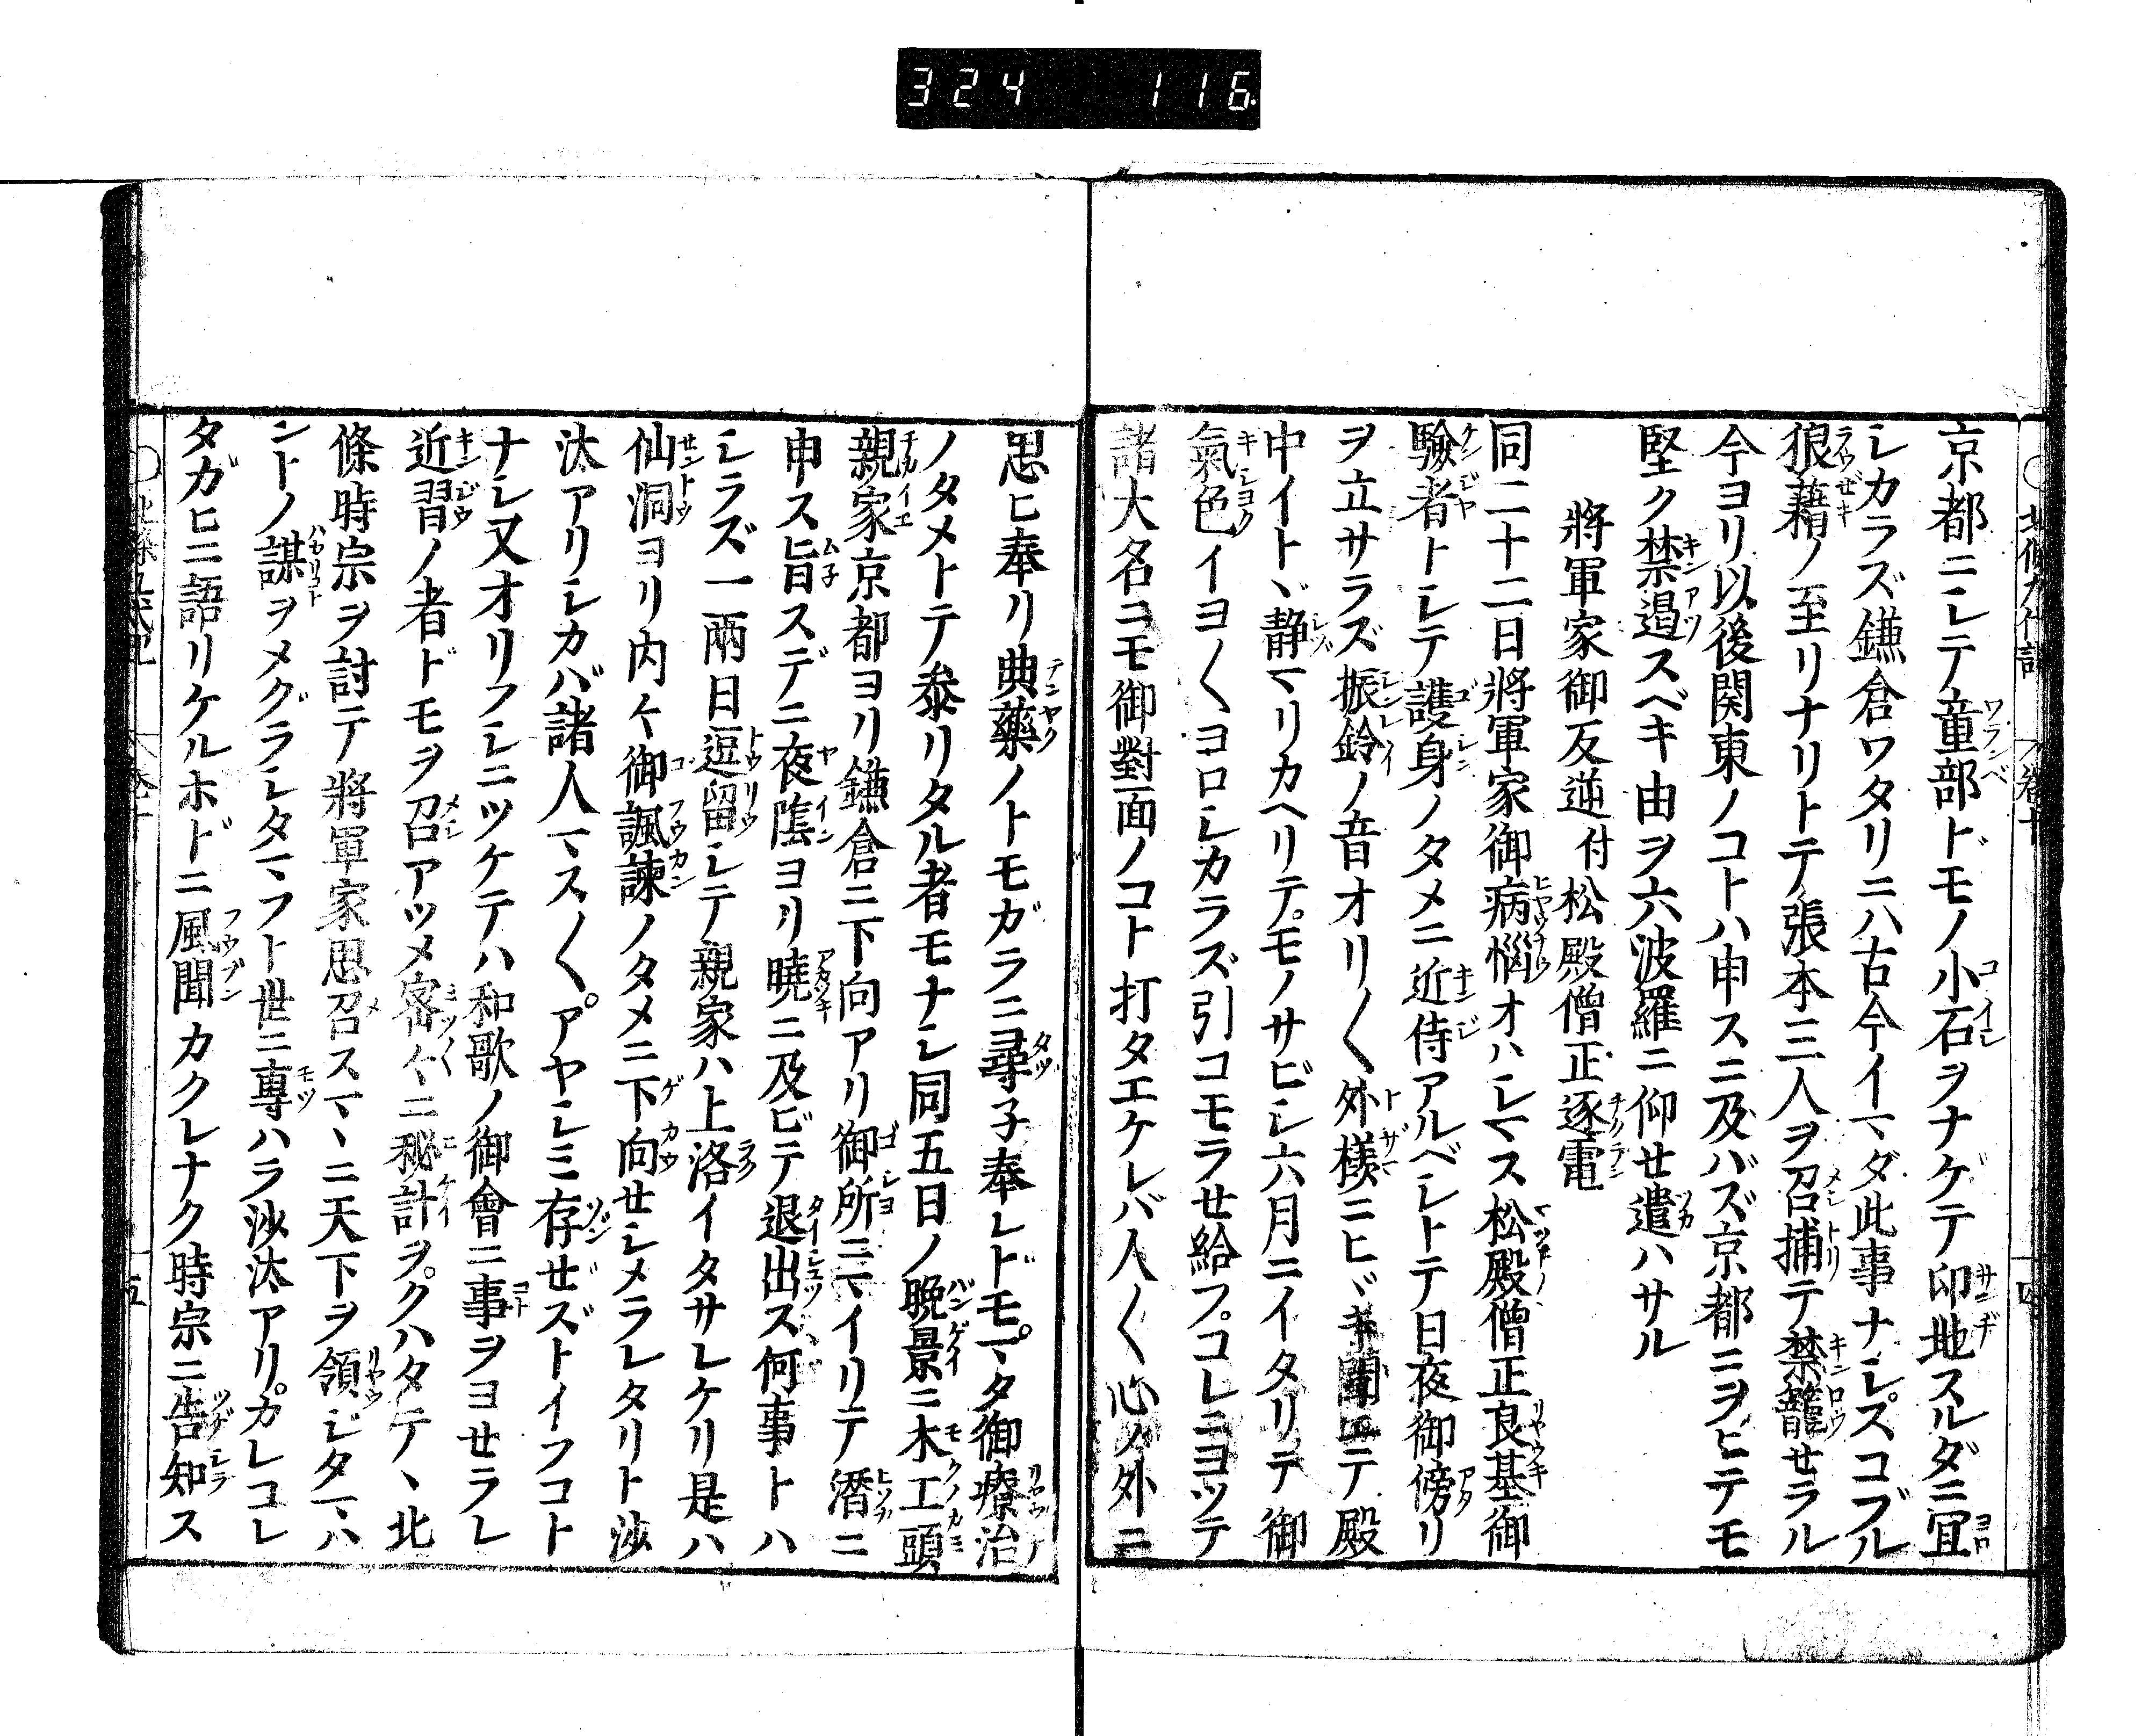 324 116
京都ニシテ童部ドモノ小石ヲナゲテ印地スルダニ冝
シカラズ鎌倉ワタリニハ古今イマダ此事ナシ。スコブル
狼藉ノ至リナリトテ張本三人ヲ召捕テ禁籠せラル
今ヨリ以後関東ノコトハ申スニ及バズ京都ニヲヒテモ
堅ク禁遏スベキ由ヲ六波羅ニ仰せ遣ハサル
將軍家御反逆付松殿僧正逐電
同二十二日將軍家御病惱オハシマス松殿僧正良基御
驗者トシテ護身ノタメニ近侍アルベシトテ日夜御傍リ
ヲ立サラズ振鈴ノ音オリ〱外樣ニヒヾキ聞エテ殿
中イトヾ静マリカヘリテ。モノサビシ六月ニイタリテ御
氣色イヨ〱ヨロシカラズ引コモラせ給フ。コレニヨツテ
諸大名ニモ御對面ノコト打タエケレバ人〱心ノ外ニ
思ヒ奉リ典藥ノトモガラニ尋子奉レドモ。マタ御療治
ノタメトテ叅リタル者モナシ同五日ノ晩景ニ木工頭
親家京都ヨリ鎌倉ニ下向アリ御所ニマイリテ潛ニ
申ス旨スデニ夜隂ヨリ曉ニ及ビテ退出ス何事トハ
シラズ一兩日逗留シテ親家ハ上洛イタサレケリ是ハ
仙洞ヨリ内々御諷諫ノタメニ下向せシメラレタリト沙
汰アリシカバ諸人マスノ〱。アヤシミ存せズトイフコト
ナシ又オリフシニツケテハ和歌ノ御會ニ事ヲヨせラレ
近習ノ者ドモヲ召アツメ密々ニ秘計ヲ。クハタテヽ北
條時宗ヲ討テ將軍家思召スマヽニ天下ヲ領ジタマハ
ントノ謀ヲメグラシタマフト世ニ専ハラ沙汰アリ。カレコレ
タガヒニ語リケルホドニ風聞カクレナク時宗ニ告知ス